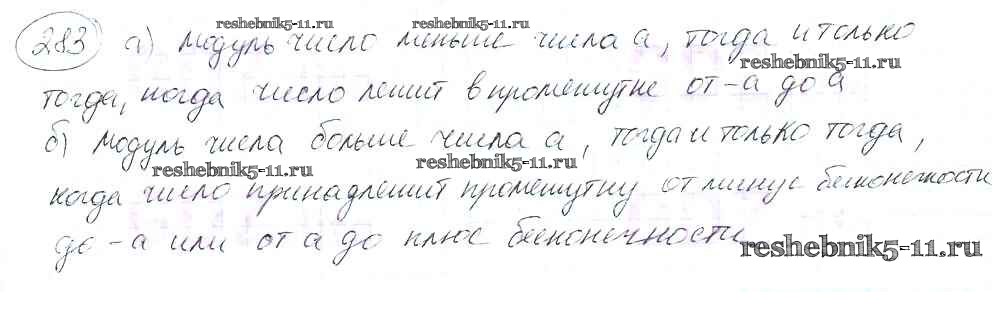 reshebnik5-11.ru reshebnik5-11.ru
283 а) Модуль число меньше числа а, тогда и только
reshebnik5-11.ru
тогда, когда число лежит в промежутке от -а до а
б) Модуль числа больше числа а, тогда и только тогда,
reshebnik5-11.ru reshebnik5-11.ru
когда число принадлежит промежутку от минус бесконечности
до -а или от а до плюс бесконечности
reshebnik5-11.ru